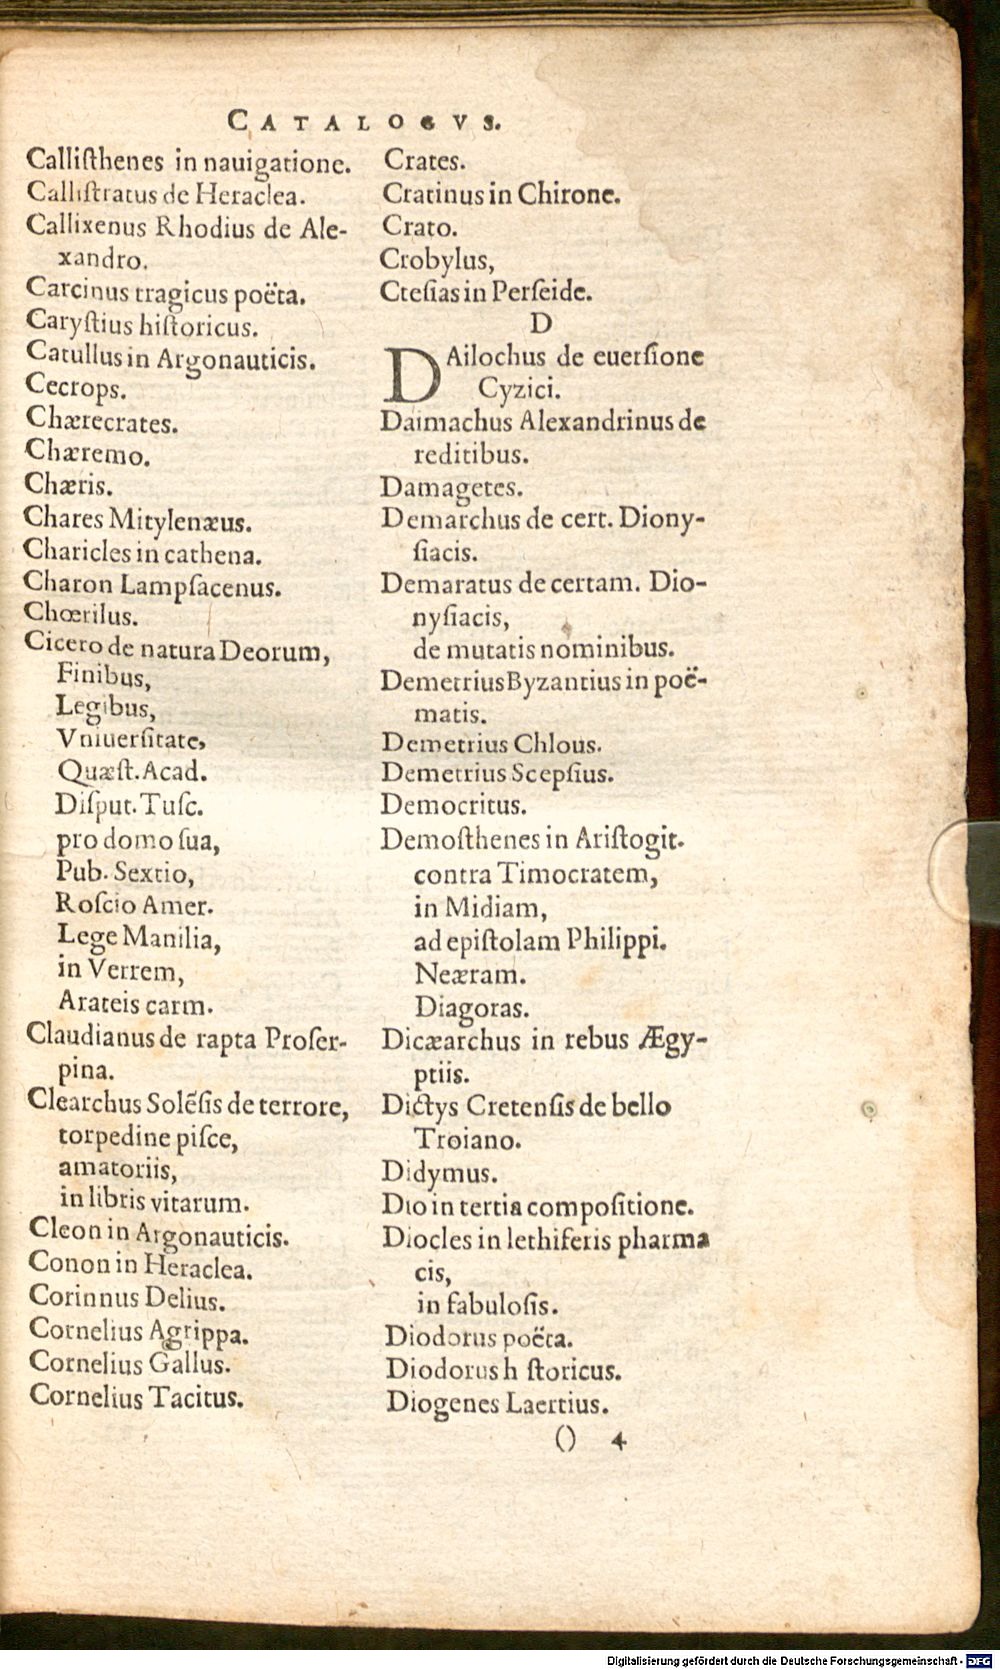 CATALOGVS.
Calliſthenes in nauigatione.
Calliſtratus de Heraclea.
Callixenus Rhodius de Ale-
xandro.
Carcinus tragicus poëta.
Caryſtius hiſtoricus.
Catullus in Argonauticis.
Cecrops.
Chærecrates.
Chæremo.
Chæris.
Chares Mitylenæus.
Charicles in cathena.
Charon Lampſacenus.
Chœrilus.
Cicero de natura Deorum,
Finibus,
Legibus,
Vniuerſitate,
Quæſt. Acad.
Diſput. Tuſc.
pro domo ſua,
Pub. Sextio,
Roſcio Amer.
Lege Manilia,
in Verrem,
Arateis carm.
Claudianus de rapta Proſer-
pina.
Clearchus Solẽſis de terrore,
torpedine piſce,
amatoriis,
in libris vitarum.
Cleon in Argonauticis.
Conon in Heraclea.
Corinnus Delius.
Cornelius Agrippa.
Cornelius Gallus.
Cornelius Tacitus.
Crates.
Cratinus in Chirone.
Crato.
Crobylus,
Cteſias in Perſeide.
D
DAilochus de euerſione
Cyzici.
Daimachus Alexandrinus de
reditibus.
Damagetes.
Demarchus de cert. Diony-
ſiacis.
Demaratus de certam. Dio-
nyſiacis,
de mutatis nominibus.
Demetrius Byzantius in poë-
matis.
Demetrius Chlous.
Demetrius Scepſius.
Democritus.
Demoſthenes in Ariſtogit.
contra Timocratem,
in Midiam,
ad epiſtolam Philippi.
Neæram.
Diagoras.
Dicæarchus in rebus Ægy-
ptiis.
Dictys Cretenſis de bello
Troiano.
Didymus.
Dio in tertia compoſitione.
Diocles in lethiferis pharma
cis,
in fabuloſis.
Diodorus poëta.
Diodorus h ſtoricus.
Diogenes Laertius.
() 4
Digitalisierung gefördert durch die Deutsche Forschungsgemeinschaft - DFG